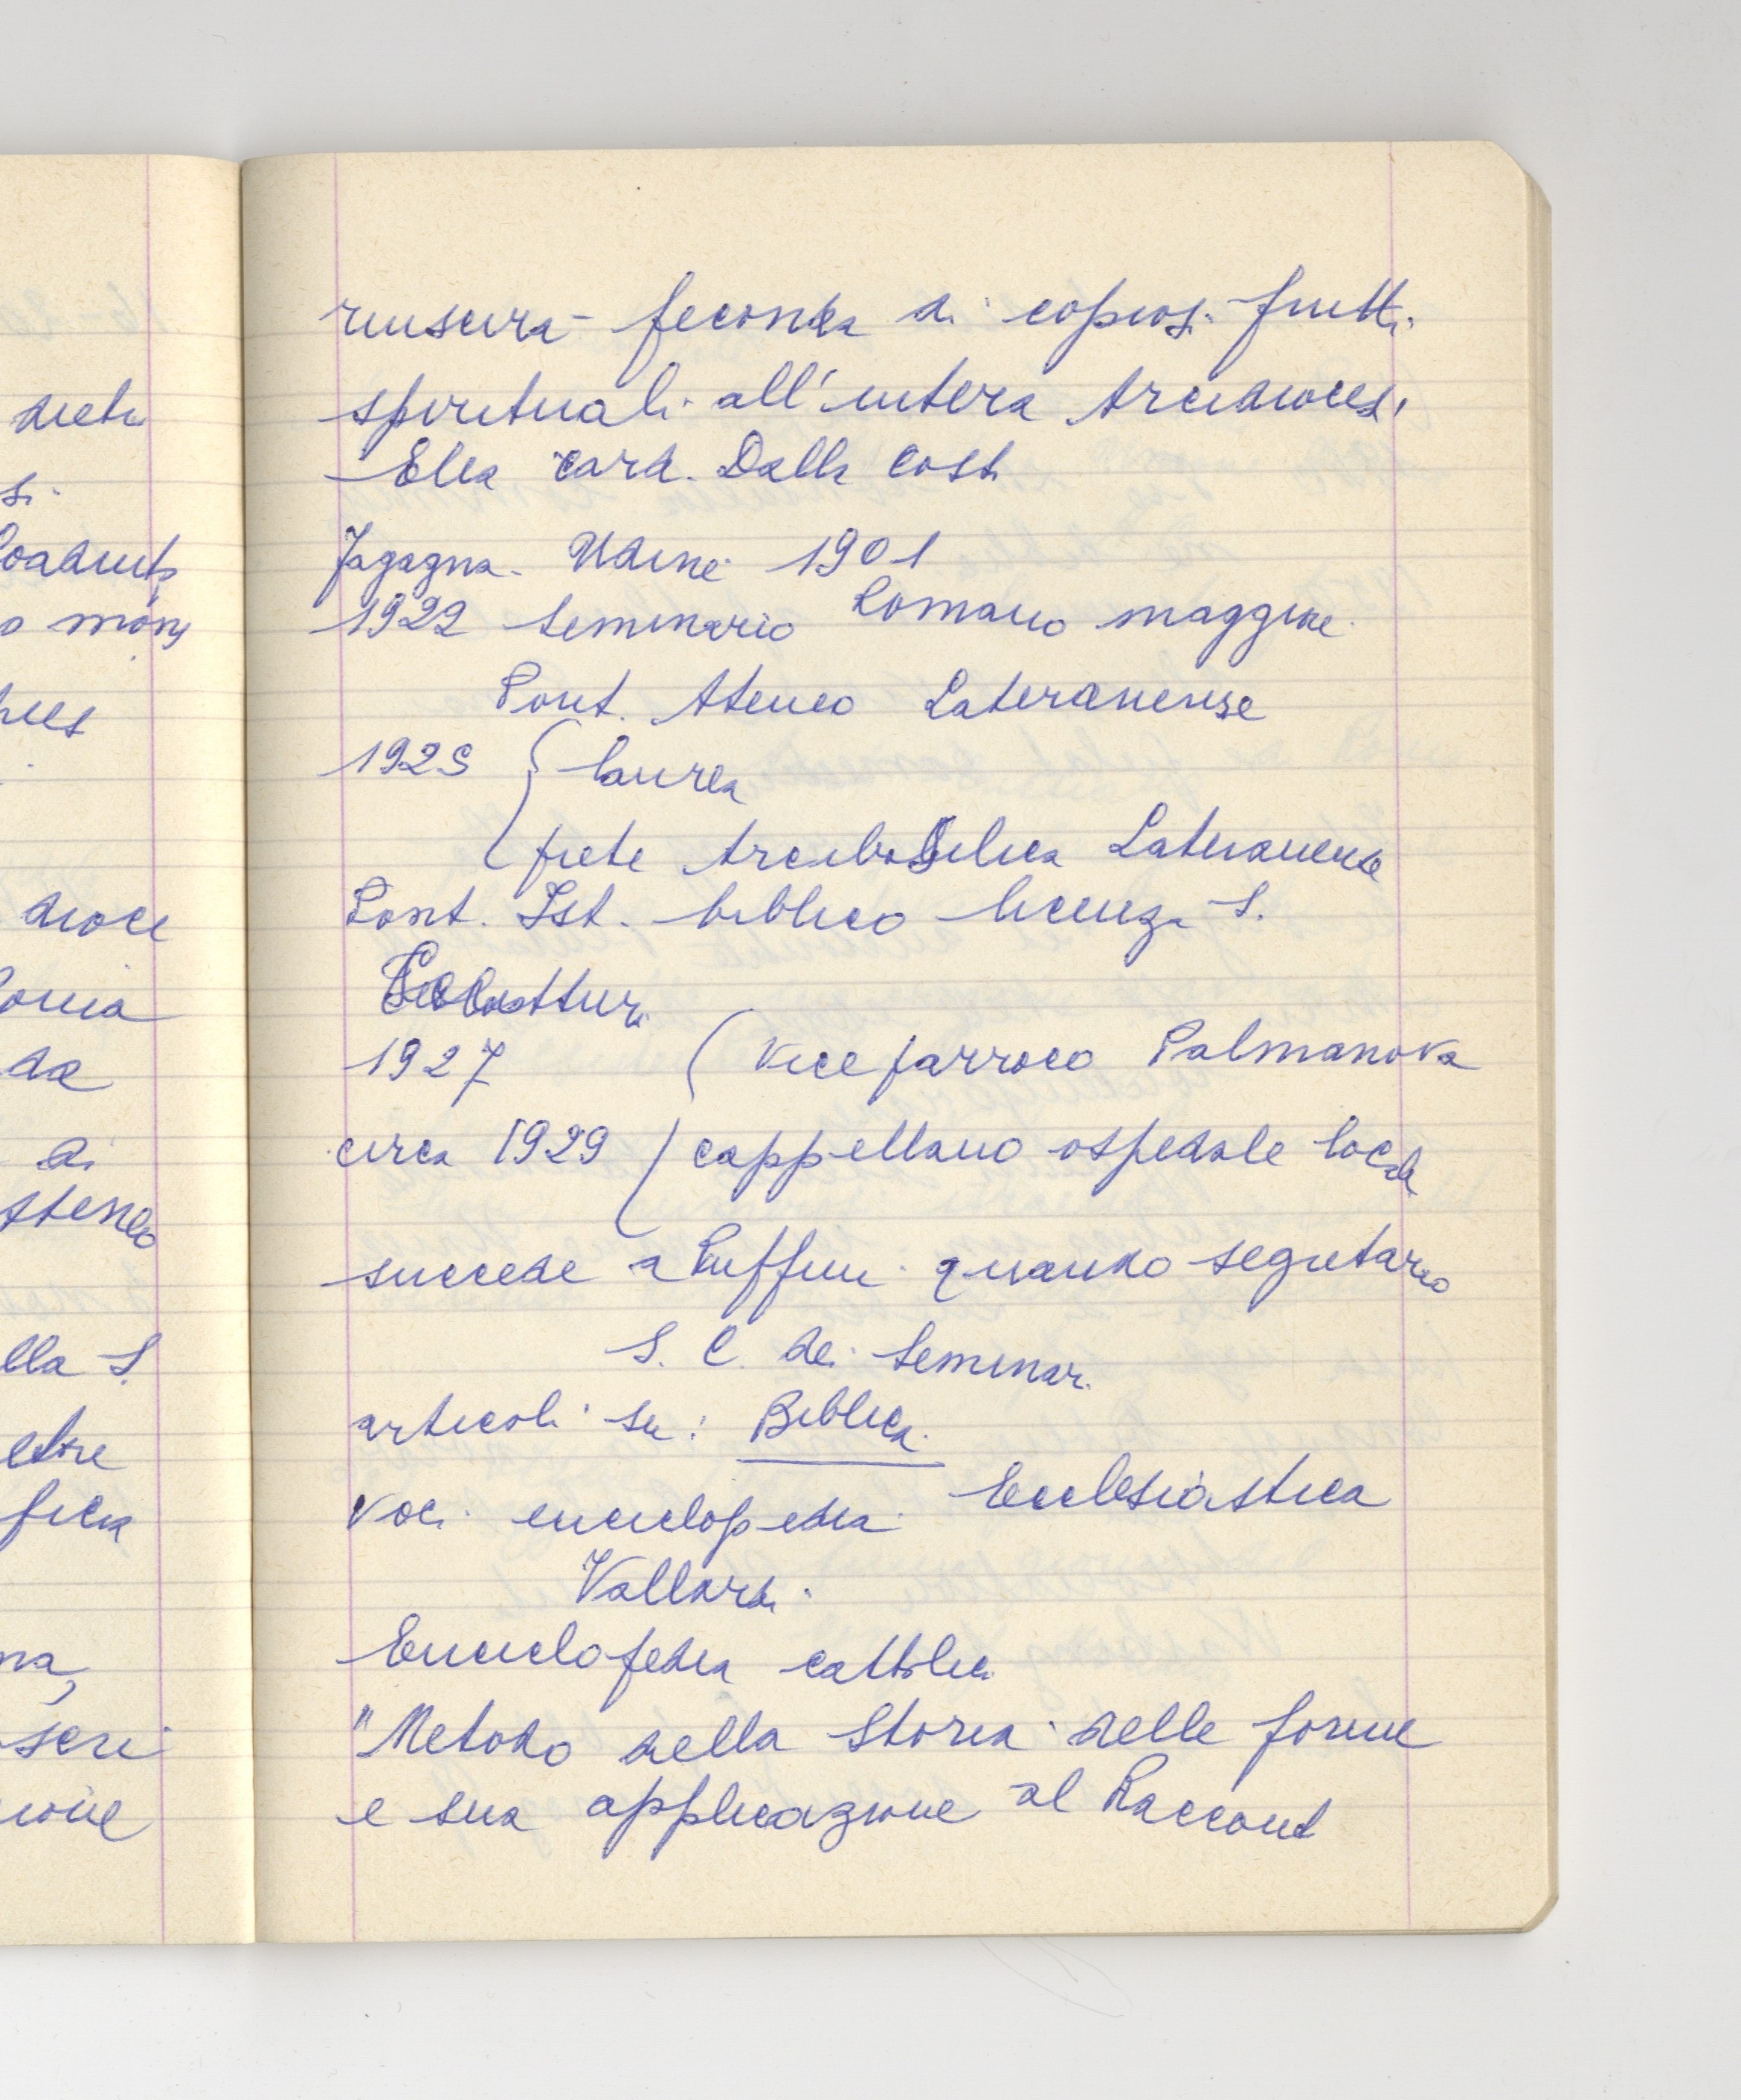 riuscirà feconda di copiosi frutti
spirituali all'intera Arcidiocesi
Elia card. Dalla Costa
Fagagna - Udine 1901
1922 Seminario Romano maggiore
Pont. Ateneo Lateranense
1925 { laurea
prete Arcibasilica Lateranense
Pont. Ist. biblico licenza S.
Scrittura
1927 ( vice parroco Palmanova
circa 1929 / cappellano ospedale locale
succede a Ruffini quando segretario
S. C. dei Seminari
articoli su: Biblica
voci enciclopedia Ecclesiastica
Vallardi
Enciclopedia cattolica
"Metodo della Storia delle forme
e sua applicazione al Raccont
dieti
si
mons
dioce
da
di
Ateneo
lla S.